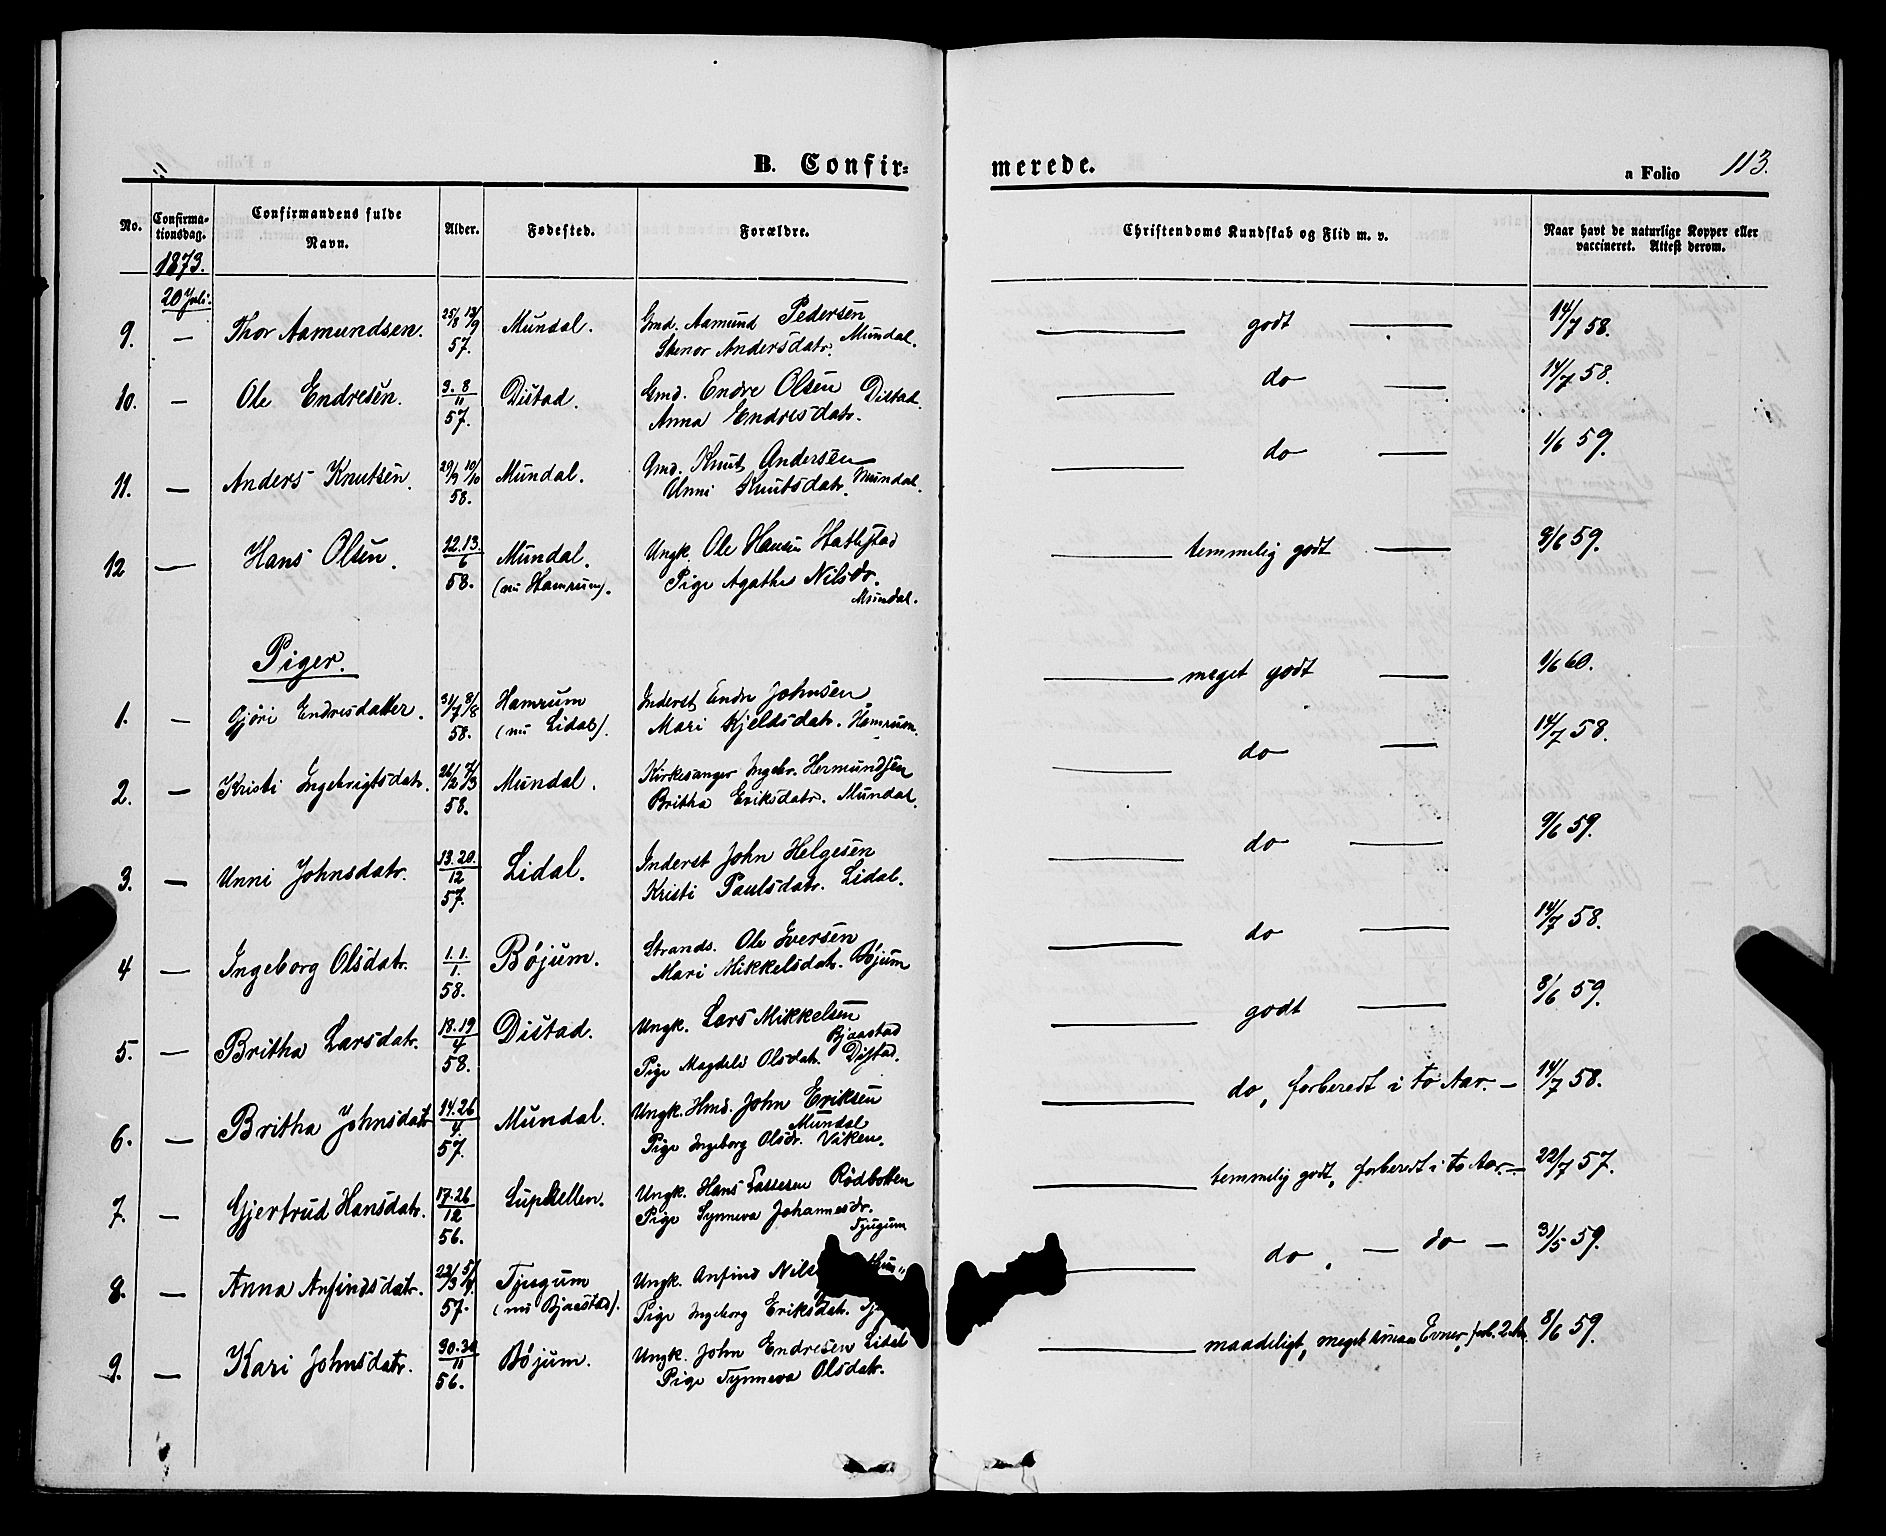 B. Confir-
merede.
a Folio 113.
No.
Confirma-
tionsdag.
Confirmandens fulde
Navn.
Alder.
Fødested.
Forældre.
Christendoms Kundskab og Flid m. v.
Naar havt de naturlige Kopper eller
vaccineret. Attest derom.
1873.
20 Juli.
9. — Thor Aamundsen. 25/8 13/9 57. Mundal. Gmd. Aamund Pedersen
Andersdatr. Mundal.
godt — 14/7 58.
10. — Ole Endresen. 3. 8/11 57. Distad. Gmd. Endre Olsen Distad.
Anna Endresdatr.
do — 14/7 58.
11. — Anders Knutsen. 29/9 10/10 58. Mundal. Gmd. Knut Andersen
Unni Knutsdatr. Mundal.
do — 1/6 59.
12 — Hans Olsen. 12.13./6 58. Mundal. Ungk. Ole Hansen
(nu Hamrum). Pige Agathe Nilsdr.
Mundal.
temmelig godt — 9/6 59.
Piger.
1. — Gjøri Endresdatter. 31/7 8/8 58. Hamrum Inderst Endre Johnsen
(nu Lidal). Mari Kjeldsdatr. Hamrum.
meget godt — 1/6 60.
2. — Kristi Ingebrigtsdatr. 26/2 7/3 58. Mundal. Kirkesanger Ingebr. Hermundsen
Britha Eriksdatr. Mundal.
do — 14/7 58.
3. — Unni Johnsdatr. 13.20./12 57. Lidal. Inderst John Helgesen
Kristi Paulsdatr. Lidal.
do — 9/6 59.
4 — Ingeborg Olsdatr. 1.1./1. 58. Bøjum. Strands. Ole Iversen
Mari Mikkelsdatr. Bøjum
do — 14/7 58.
5. — Britha Larsdatr. 18.19/4 58. Distad. Ungk. Lars Mikkelsen
Bjaastad
Pige Magdele Olsdatr. Distad.
godt — 8/6 59.
6. — Britha Johnsdatr 14.26/4. 57. Mundal. Ungk. Hmd. John Eriksen
Mundal
Pige Ingeborg Olsdr. Viken.
do, forberedt i to Aar. — 14/7 58.
7. — Gjertrud Hansdatr. 17.26/12 56. Ungk. Hans Lassesen Rødbotten
Pige Synneva Johannesdr.
Tjugum
temmelig godt, forberedt i to Aar. — 22/7 57.
8. — Anna Anfindsdatr. 22/3 5/4 57. Tjugum Ungk. Anfind
(nu Bjaastad). Pige Ingeborg Eriksdatr.
do, — do — 31/5 59.
9. — Kari Johnsdatr. 56. Bøjum. Ungk. John Endresen Lidal
Pige Synneva Olsdatr.
maadeligt, meget smaa Evner, forb. 2 Aar 8/6 59.